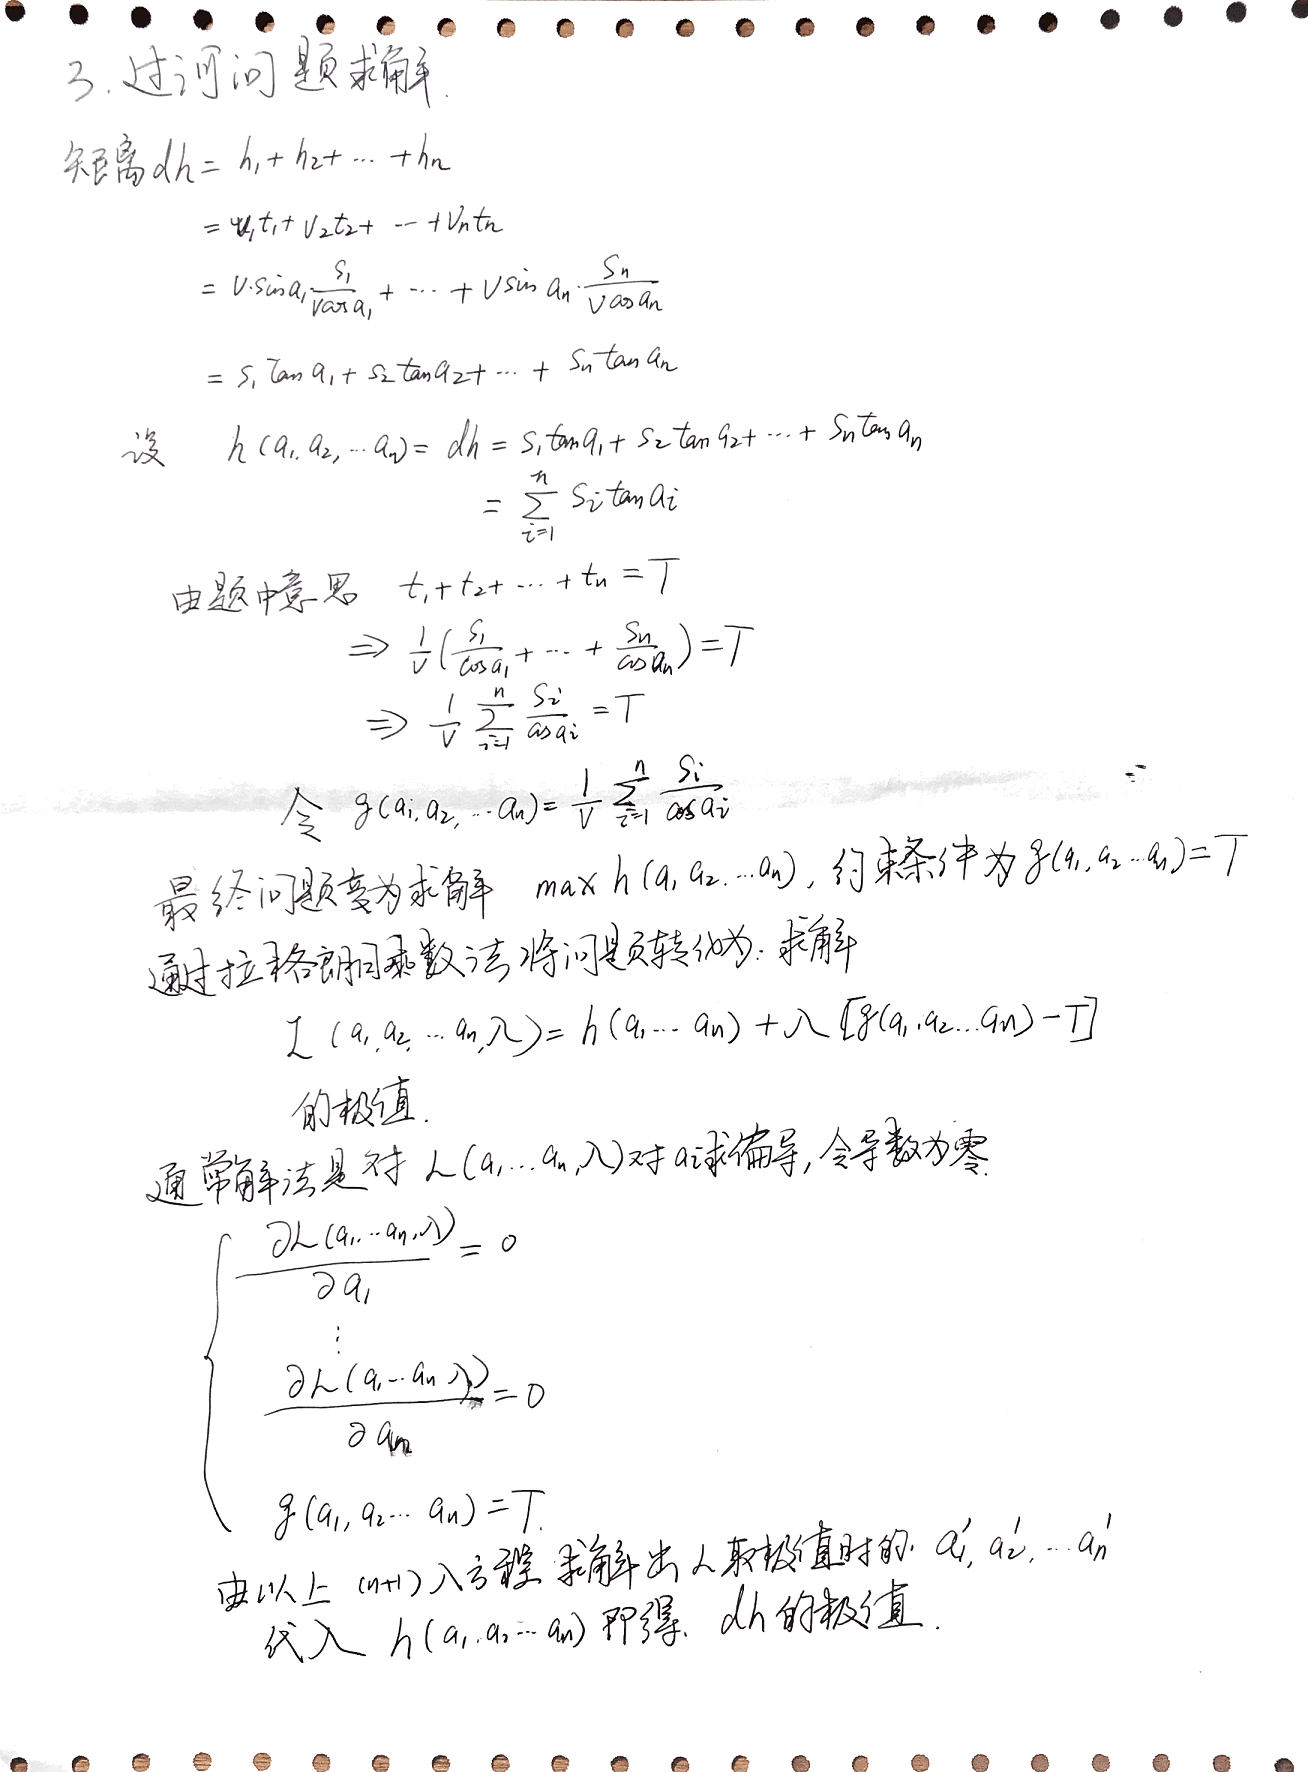 3. 过河问题求解.
矩离dh = h₁ + h₂ + … + hn
= v₁t₁ + v₂t₂ + … + vntn
= v·sin a₁ · s₁/(v cos a₁) + … + v sin an · sn/(v cos an)
= s₁ tan a₁ + s₂ tan a₂ + … + sn tan an
设 h(a₁, a₂, … an) = dh = s₁ tan a₁ + s₂ tan a₂ + … + sn tan an
= ∑ᵢ₌₁ⁿ sᵢ tan aᵢ
由题中意思 t₁ + t₂ + … + tn = T
⇒ 1/v (s₁/cos a₁ + … + sn/cos an) = T
⇒ 1/v ∑ᵢ₌₁ⁿ sᵢ/cos aᵢ = T
令 g(a₁, a₂, … an) = 1/v ∑ᵢ₌₁ⁿ sᵢ/cos aᵢ
最终问题变为求解 max h(a₁, a₂, … an), 约束条件为 g(a₁, a₂ … an) = T
通过拉格朗日乘数法将问题转化为: 求解
L(a₁, a₂, … an, λ) = h(a₁ … an) + λ[g(a₁, a₂ … an) − T]
的极值.
通常解法是对 L(a₁, … an, λ) 对 aᵢ求偏导, 令导数为零.
∂L(a₁, … an, λ)/∂a₁ = 0
⋮
∂L(a₁ … an λ)/∂an = 0
g(a₁, a₂ … an) = T.
由以上 (n+1) 个方程 求解出 L 取极值时的 a₁′, a₂′, … an′
代入 h(a₁, a₂ … an) 即得. dh 的极值.